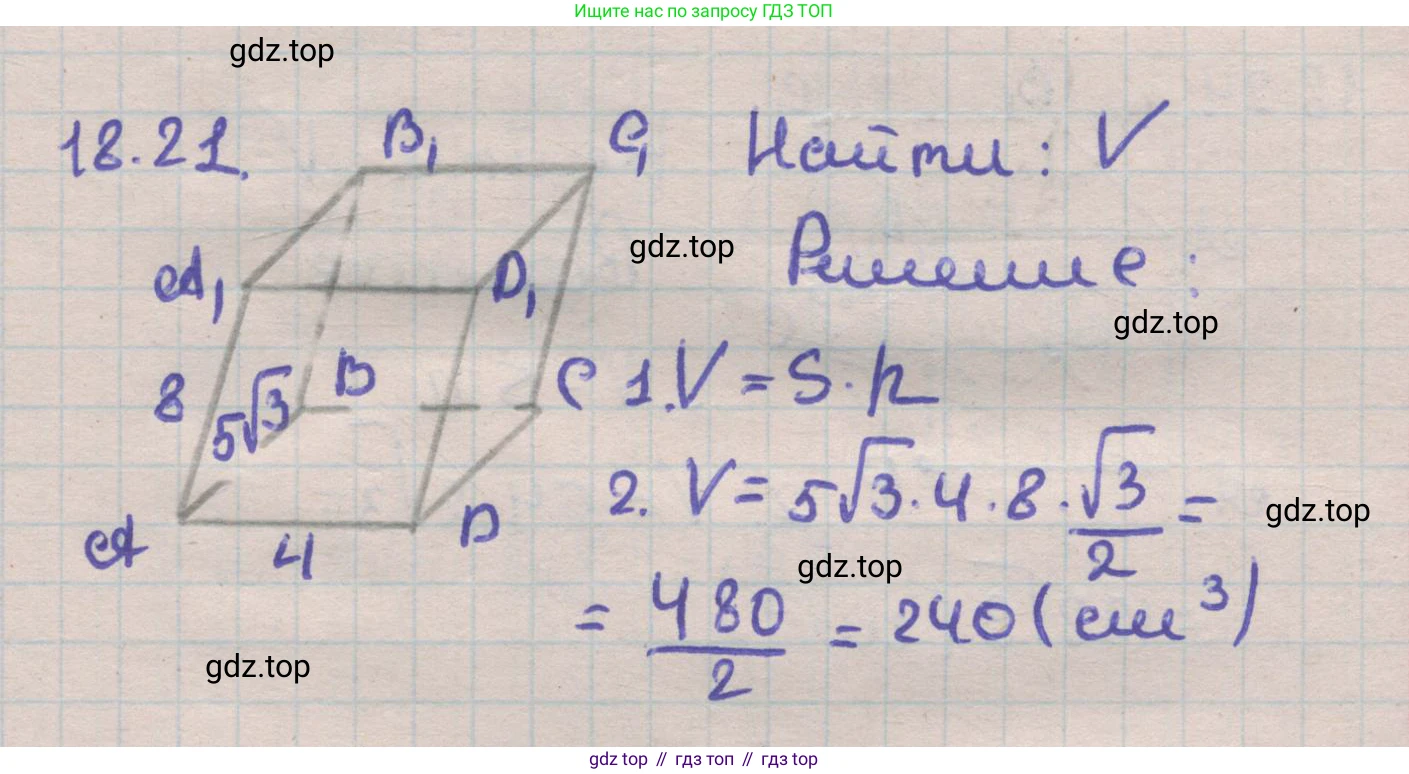 Ищите нас по запросу ГДЗ ТОП
gdz.top
18.21.
B₁
C₁
Найти: V
A₁
D₁
gdz.top
Решение:
gdz.top
8
5√3
B
C
1. V = S · h
2. V = 5√3 · 4 · 8 · √3/2 =
gdz.top
A
4
D
gdz.top
= 480/2 = 240 (см³)
gdz.top
gdz top // гдз топ // гдз top